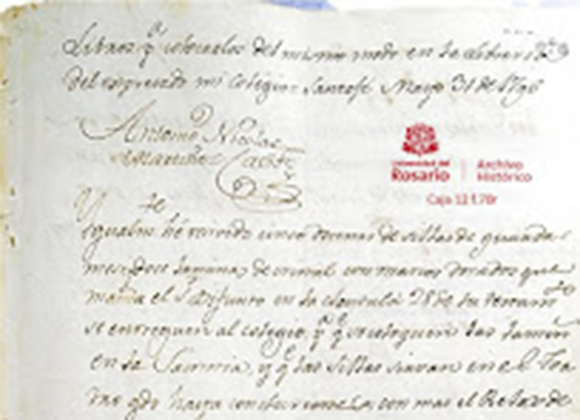 Libros q.e colocarlos del mismo modo en la libreria
del expresado mi Colegio Santafe Mayo 31 de 1796
Antonio Nicolas
Martinez
Universidad del
Rosario
Archivo
Histórico
Caja 12 f.70r
Y
igualm.te he recivido cinco docenas de sillas de guada
mesi, dos laminas de cristal con marcos dorados que
manda el S.r Difunto en la clausula 28 de su
se entreguen al colegio, p.a q.e se coloquen las
en la y q.e las sillas sirvan en el
haya con mas el Relox de